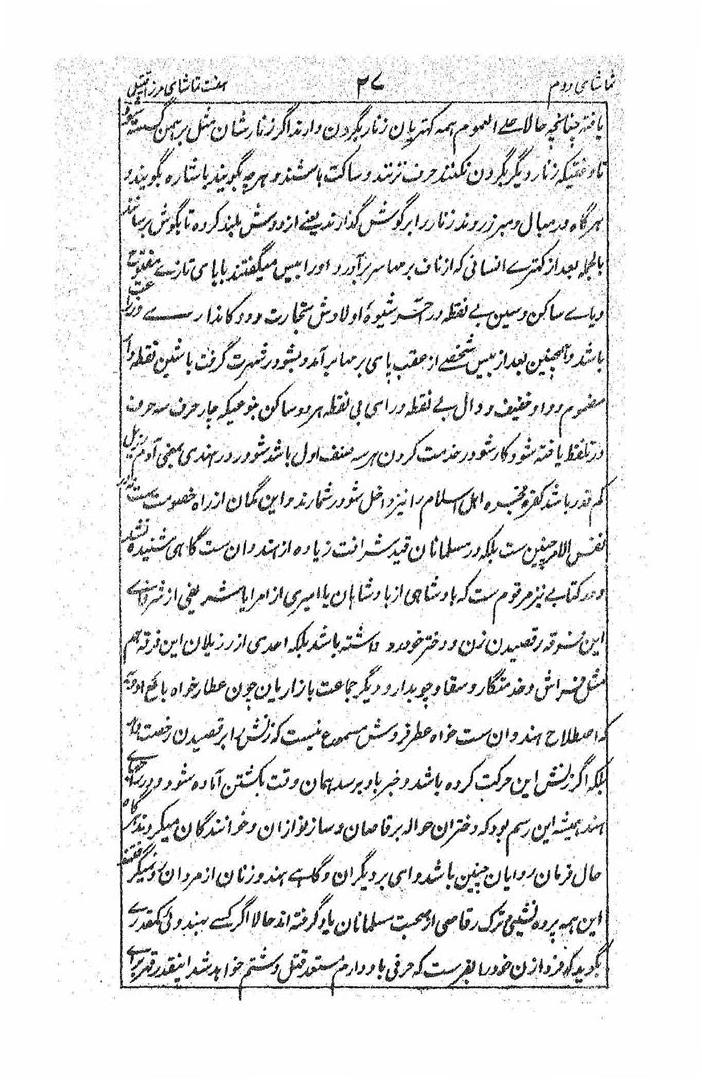 تماشای دوم ۲۷ هفت تماشای مرزا قتیل
یافته چنانچه حالا علے العموم همه کهتریان زنار بگردن دارند اگر زنار شان مثل برهمن گسسته شود
تا وقتیکه زنار دیگر بگردن نکنند حرف نزنند و ساکت باشند و هرچه گویند باشاره گویند و
هرگاه در مبال و مبرز روند زنار را بر گوش گذارند یعنے از دوش بلند کرده تا بگوش رسانند
بالجمله بعد از کهترے انسانی که از ناف برمها سر برآورد او را بیس میگفتند ببای تازے مفتوح
و یاے ساکن و سین بے نقطه در آخر شیوهٔ اولادش تجارت و دوکاندارے و زراعت
باشد و همچنین بعد از بیس شخصے از عقب پای برمها برآمد و بشودر شهرت گرفت با شین نقطه دار
مضموم و واو خفیف و دال بے نقطه و رای بی نقطه هر دو ساکن بنوعیکه چار حرف سه حرف
در تلفظ یافته شود کار شودر خدمت کردن هر سه صنف اول باشد شودر در هندی بمعنی آدم رذیل
کم قدر باشد کفره فجره اهل اسلام را نیز داخل شودر شمارند و این گمان از راه خصومت ست نه در
نفس الامر چنین ست بلکه در مسلمانان قید شرافت زیاده از هندوان ست گاهی شنیده نشد
و در کتابے نیز مرقوم ست که بادشاهی از بادشاهان یا امیری از امرا یا شریفی از شرفاے
این فرقه رقصیدن زن و دختر خود روا داشته باشد بلکه احدی از رزیلان این فرقه هم
مثل فراش و خدمتگار و سقا و چوبدار و دیگر جماعت بازاریان چون عطار خواه بائع ادویه
که اصطلاح هندوان ست خواه عطر فروش مسموع نیست که زنش را برقصیدن رخصت داد
بلکه اگر زنش این حرکت کرده باشد و خبر باو برسد همان وقت بکشتن آماده شود و در راجهاے
هند همیشه این رسم بود که دختران حواله برقاصان و سازنوازان و خوانندگان میکردند هرگاه
حال فرمان روایان چنین باشد وای بر دیگران و گاهے هندو زنان از مردان رو نمیگرفتند
این همه پرده نشینی و ترک رقاصی از صحبت مسلمانان یاد گرفته اند حالا اگر کسے بهندوئی کمقدرے
بگوید که فردا زن خود را بفرست که حرفی باو دارم مستعد قتل و شتم خواهد شد اینقدر قهر براے